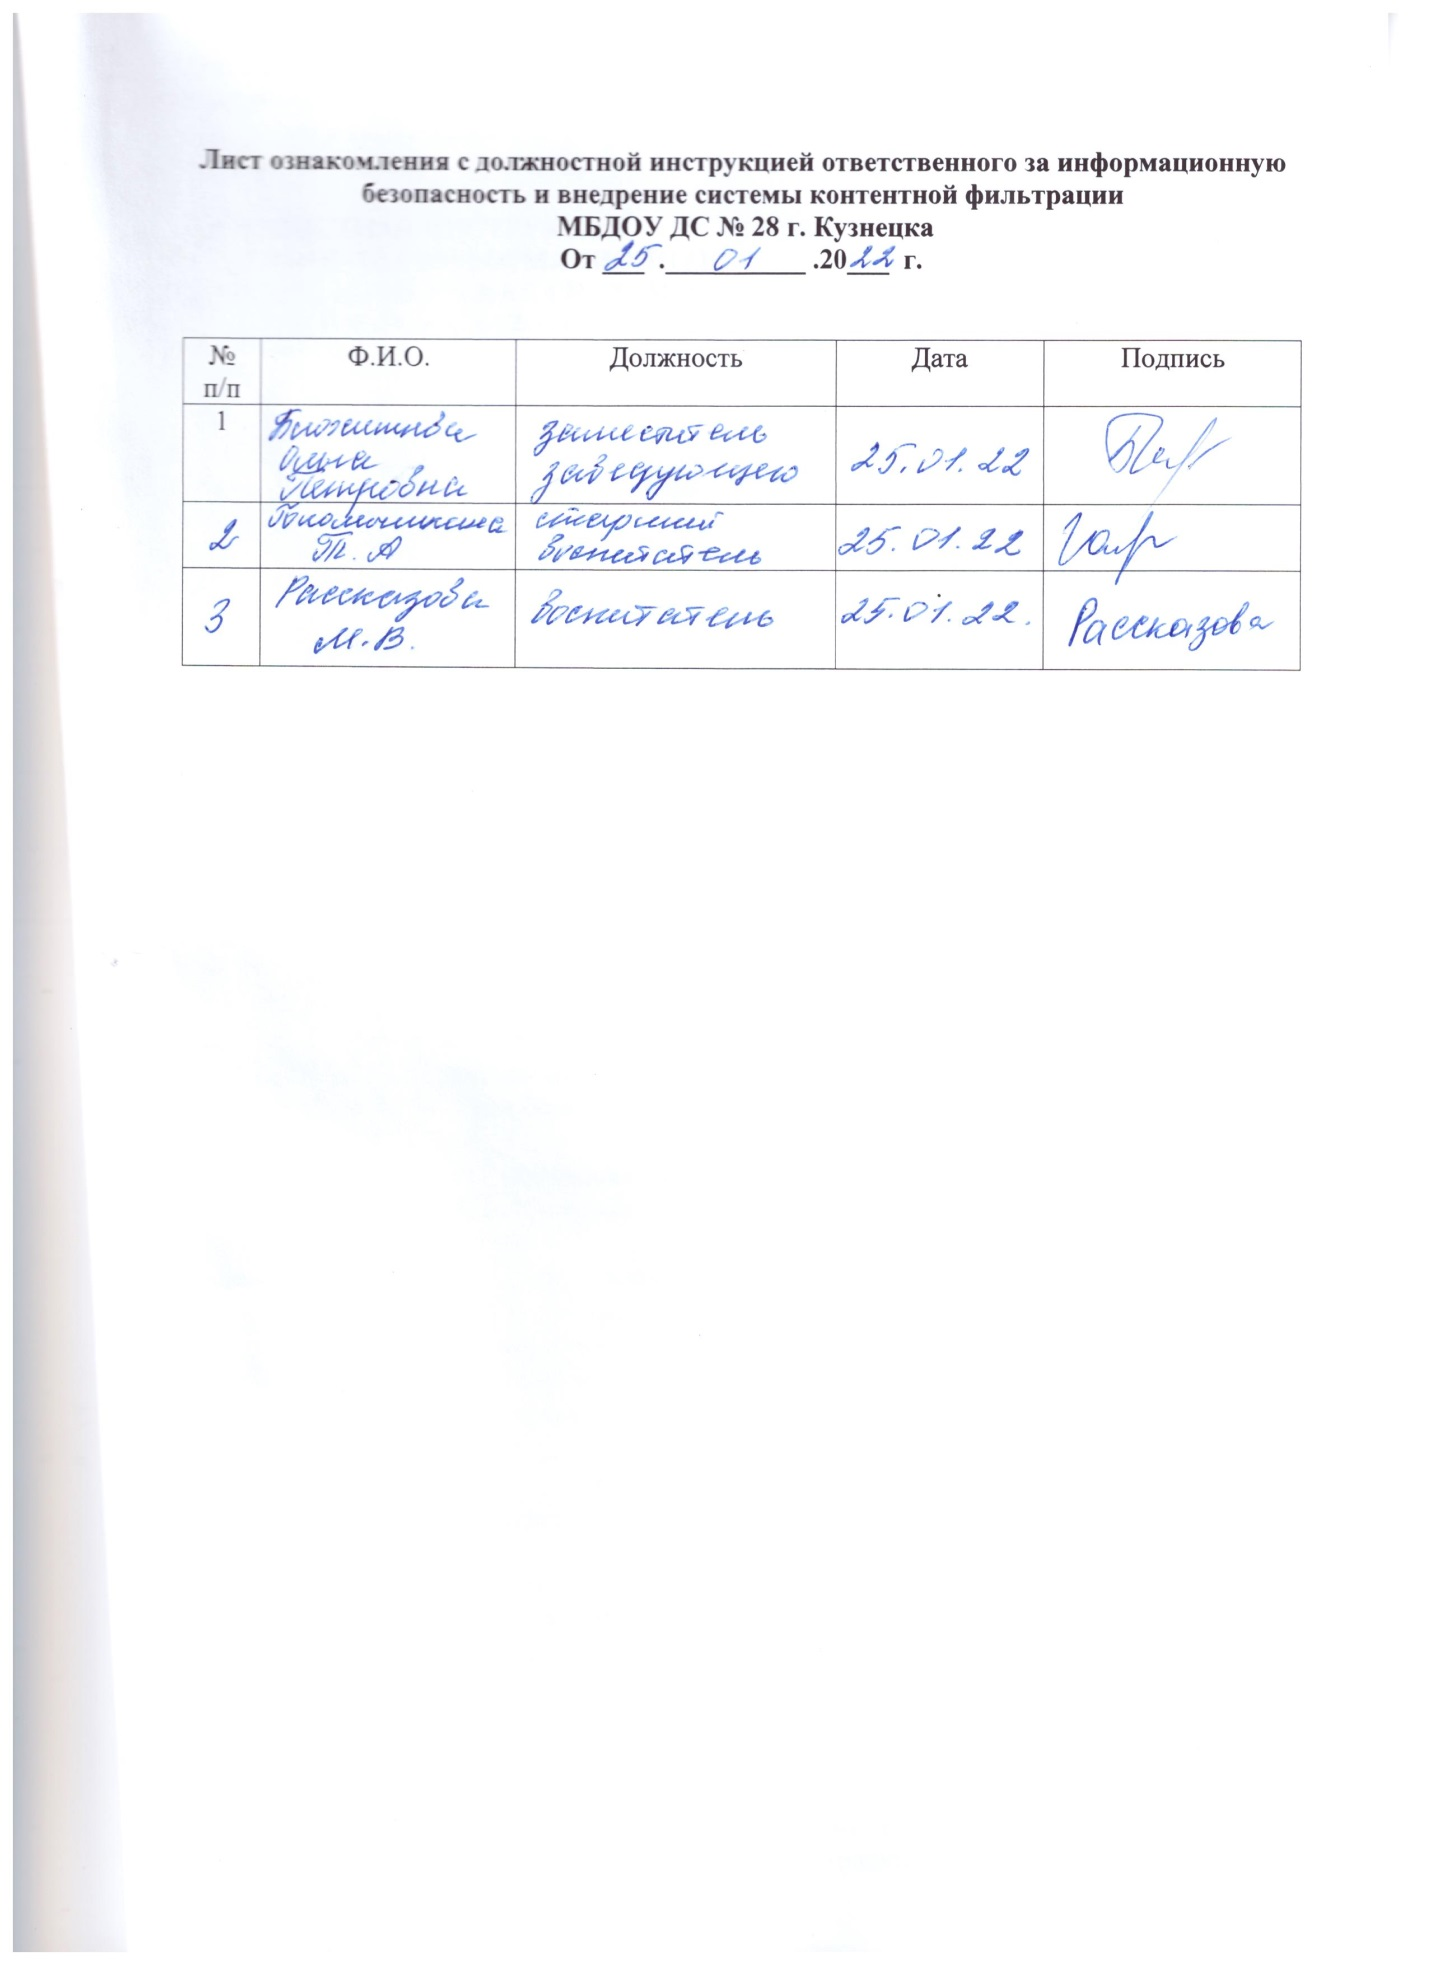 Лист ознакомления с должностной инструкцией ответственного за информационную
безопасность и внедрение системы контентной фильтрации
МБДОУ ДС № 28 г. Кузнецка
От 25 . 01 .2022 г.
№ п/п Ф.И.О. Должность Дата Подпись
1 Ольга Петровна заместитель заведующего 25.01.22
2 Т. А старший воспитатель 25.01.22
3 Рассказова М.В. воспитатель 25.01.22. Рассказова